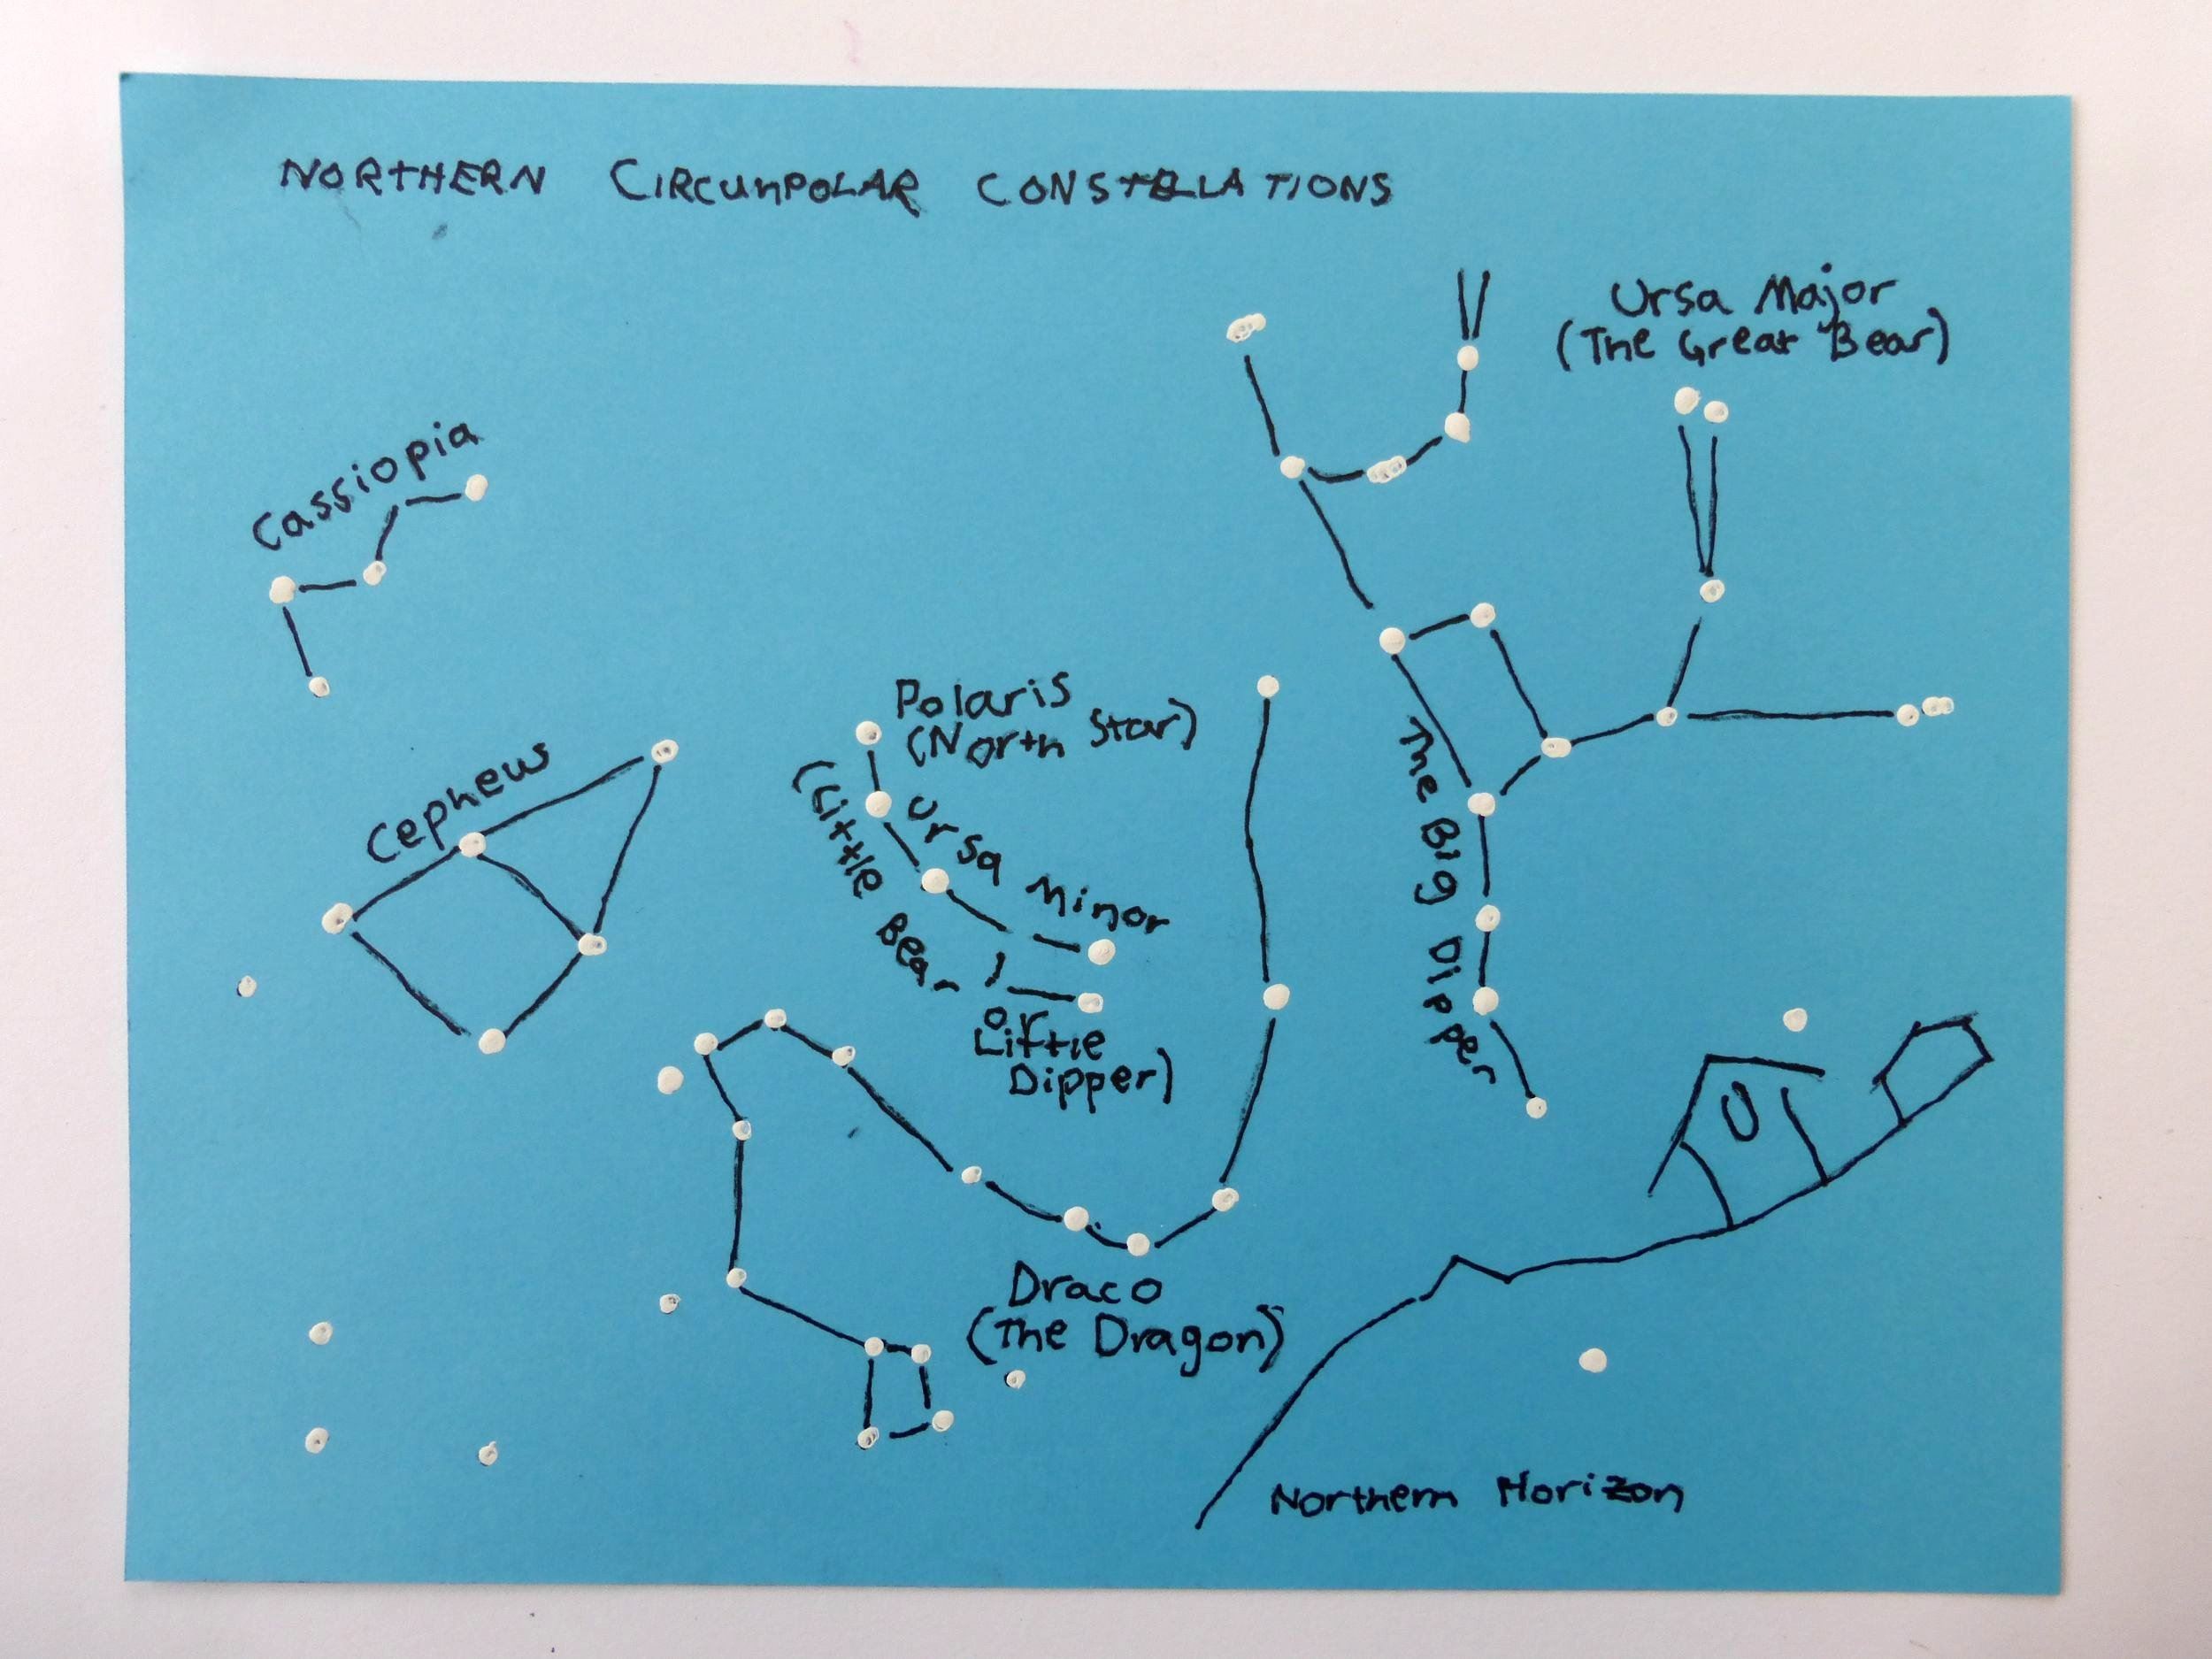 NORTHERN CIRCUMPOLAR CONSTELLATIONS
Ursa Major
(The Great Bear)
Cassiopia
Polaris
(North Star)
Cephew
Ursa Minor
(Little Bear
or
Little
Dipper)
The Big Dipper
Draco
(The Dragon)
Northern Horizon